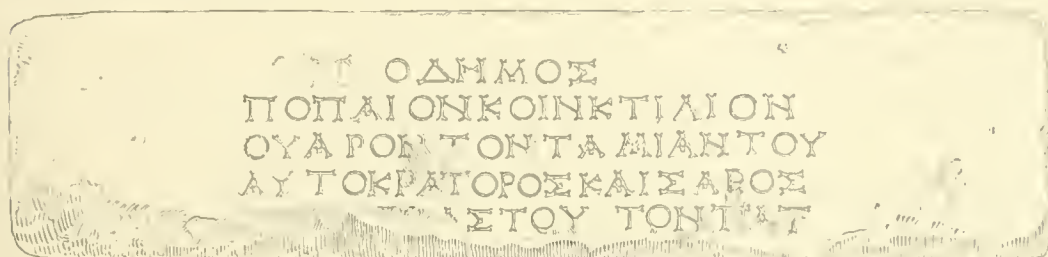 ΟΔΗΜΟΣ
ΠΟΠΑΙΟΝΚΟΙΝΚΤΙΛΙΟΝ
ΟΥΑΡΟΝΤΟΝΤΑΜΙΑΝΤΟΥ
ΑΥΤΟΚΡΑΤΟΡΟΣΚΑΙΣΑΡΟΣ
ΣΤΟΥ ΤΟΝ